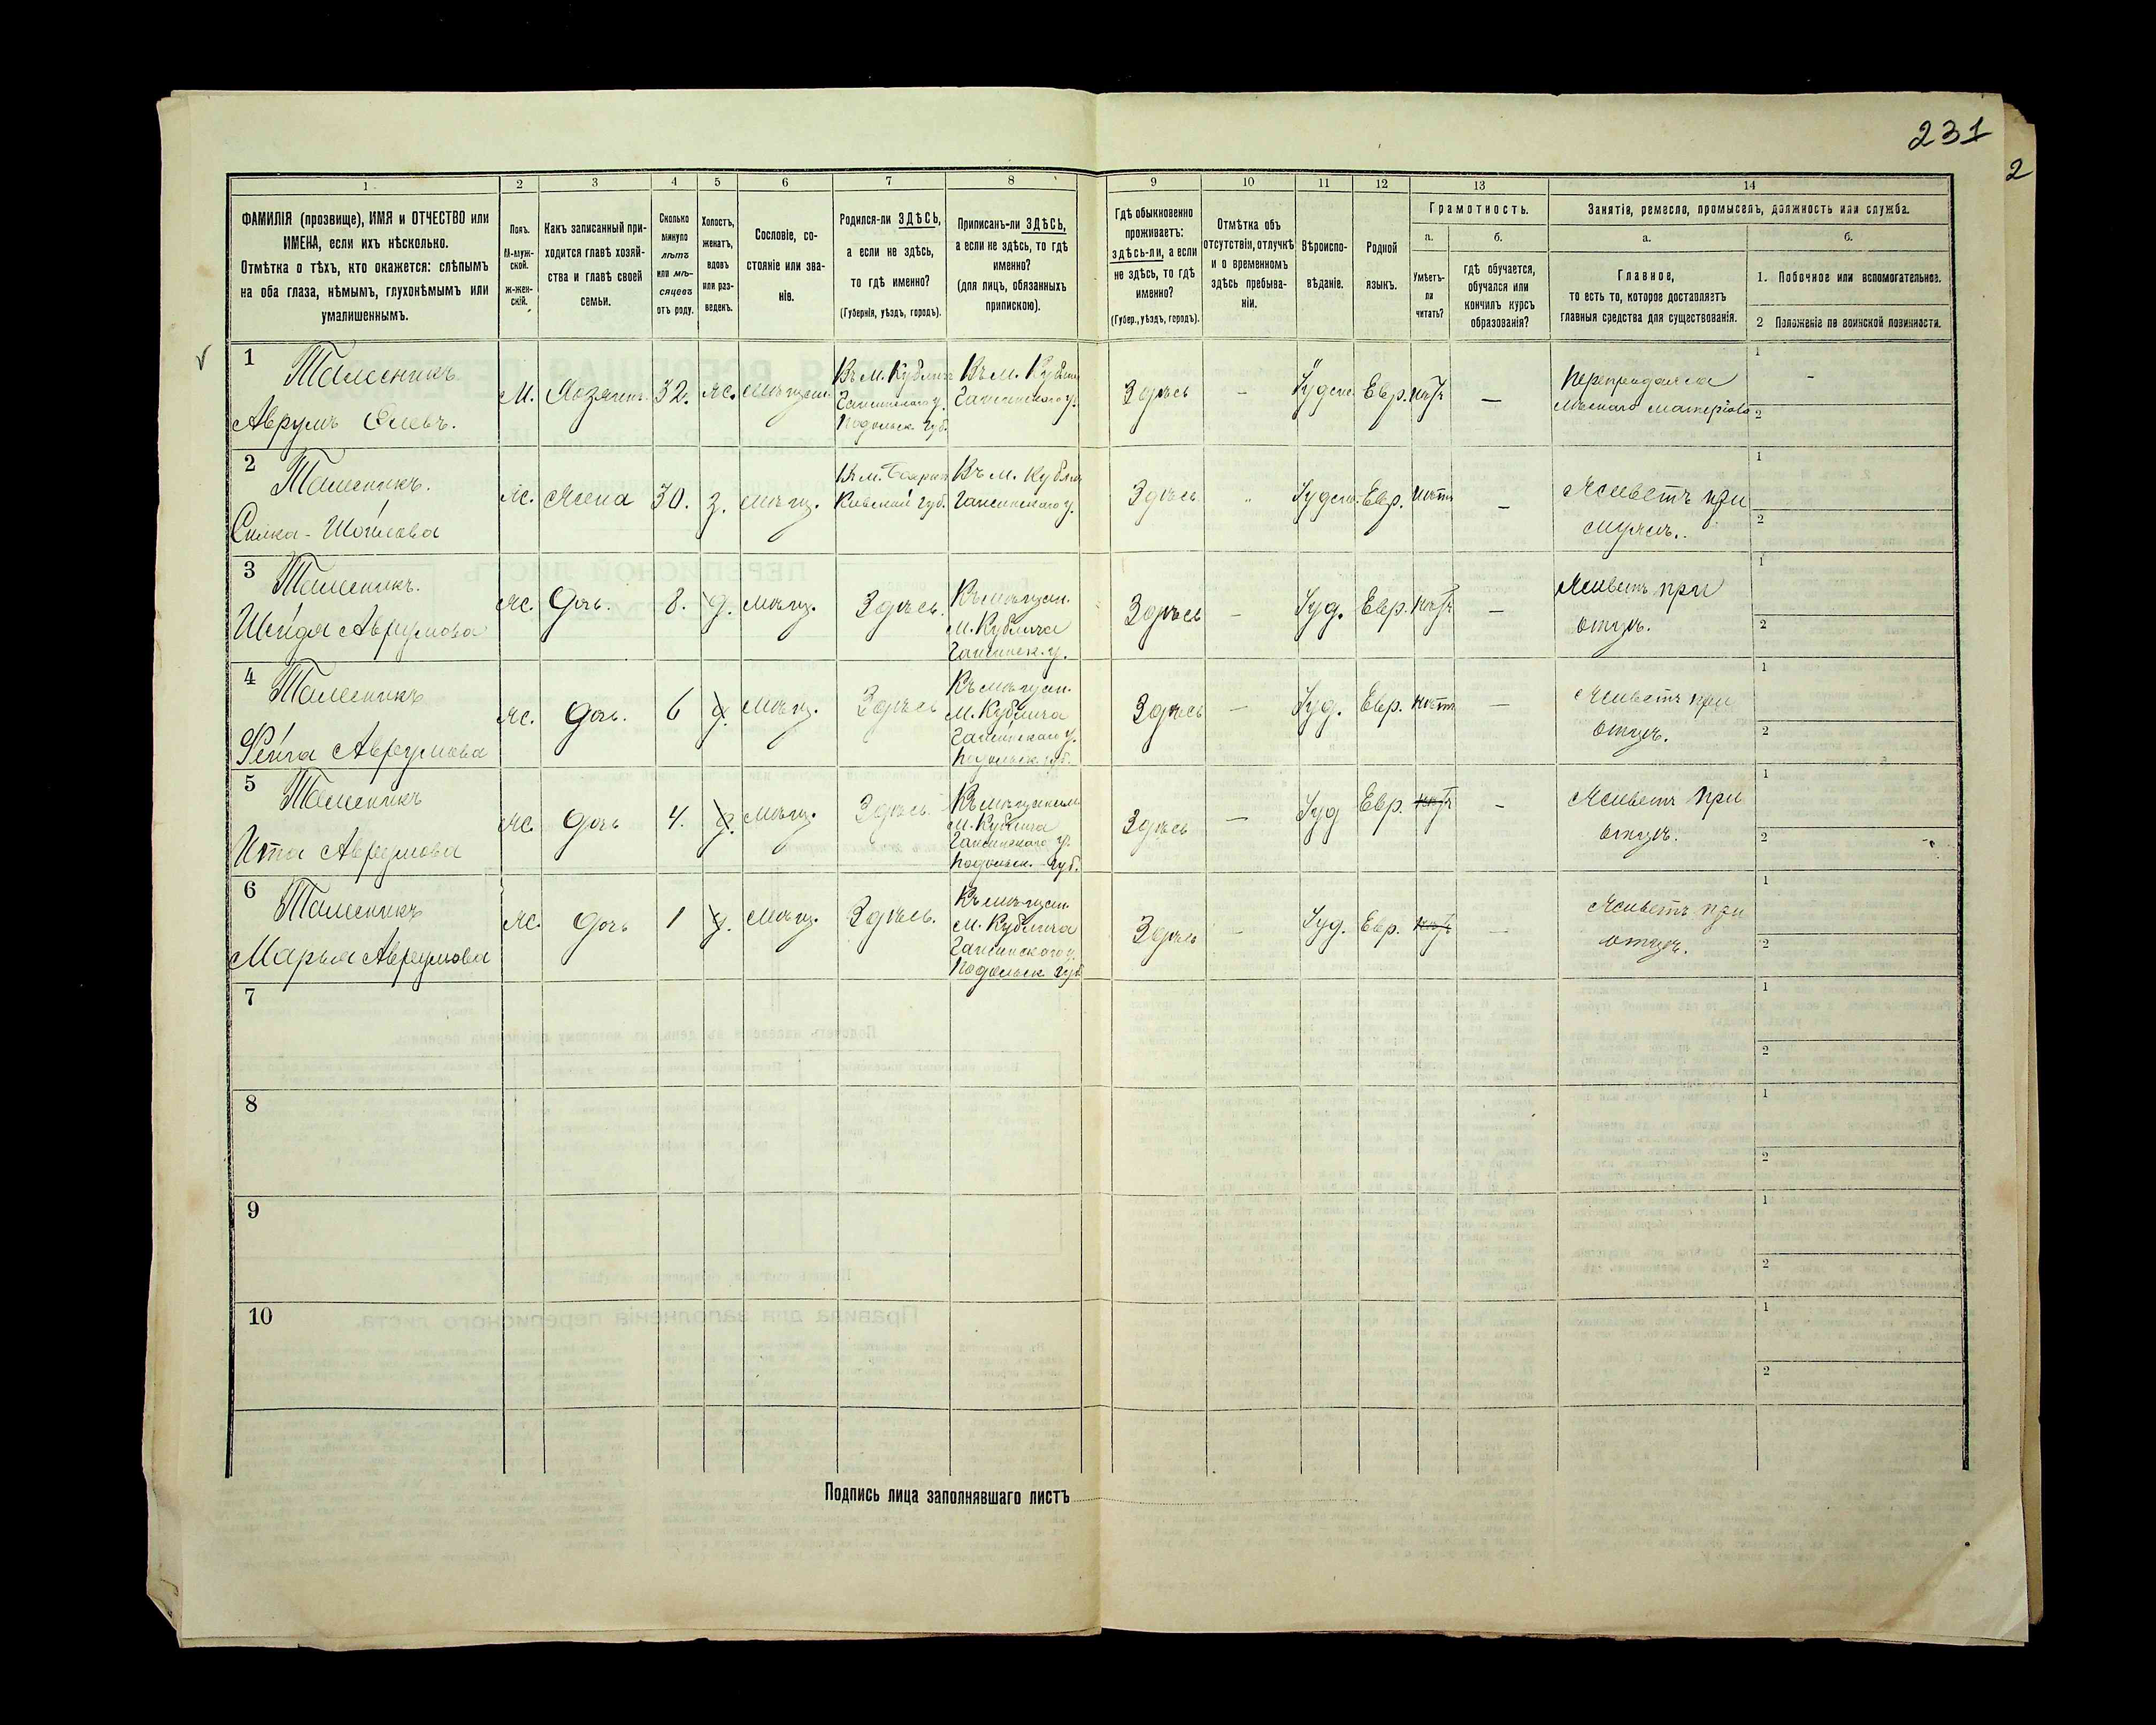 231
2
1 2 3 4 5 6 7 8 9 10 11 12 13 14
ФАМИЛІЯ (прозвище), ИМЯ и ОТЧЕСТВО или
ИМЕНА, если ихъ нѣсколько.
Отмѣтка о тѣхъ, кто окажется: слѣпымъ
на оба глаза, нѣмымъ, глухонѣмымъ или
умалишеннымъ.
Полъ.
М-муж-
ской.
ж-жен-
скій.
Какъ записанный при-
ходится главѣ хозяй-
ства и главѣ своей
семьи.
Сколько
минуло
лѣтъ
или мѣ-
сяцевъ
отъ роду.
Холостъ,
женатъ,
вдовъ
или раз-
веденъ.
Сословіе, со-
стояніе или зва-
ніе.
Родился-ли ЗДѢСЬ,
а если не здѣсь,
то гдѣ именно?
(Губернія, уѣздъ, городъ).
Приписанъ-ли ЗДѢСЬ,
а если не здѣсь, то гдѣ
именно?
(для лицъ, обязанныхъ
припискою).
Гдѣ обыкновенно
проживаетъ:
здѣсь-ли, а если
не здѣсь, то гдѣ
именно?
(Губер., уѣздъ, городъ).
Отмѣтка объ
отсутствіи, отлучкѣ
и о временномъ
здѣсь пребыва-
ніи.
Вѣроиспо-
вѣданіе.
Родной
языкъ.
Грамотность.
а.
Умѣетъ-
ли
читать?
б.
гдѣ обучается,
обучался или
кончилъ курсъ
образованія?
Занятіе, ремесло, промыселъ, должность или служба.
а.
Главное,
то есть то, которое доставляетъ
главныя средства для существованія.
б.
1. Побочное или вспомогательное.
2 Положеніе по воинской повинности.
1
Талесникъ
Аврумъ
М.
Хозяинъ
32.
ж.
мѣщан.
Въ м. Кублич
Гайсинского у.
Подольск. Губ.
Къ м. Кублич
Гайсинского у.
Здѣсь
–
Іудейс.
Евр.
нѣтъ
—
Перепродажа
лѣсного матеріала
1
-
2
2
Талесникъ.
Шойлова
Ж.
Жена
30.
з.
мѣщ.
Кіевской губ.
Къ м. Кублич
Гайсинского у.
Здѣсь
Іудейс.
Евр.
нѣтъ
–
Живетъ при
мужѣ.
1
2
3
Талесникъ.
Шейдя Аврумова
Ж.
Дочь.
8.
д.
мѣщ.
Здѣсь.
Къ мѣщан.
м. Кублича
Гайсинск. у.
Здѣсь
–
Іуд.
Евр.
нѣтъ
—
Живетъ при
отцѣ.
1
2
4
Талесникъ
Фейга Аврумова
Ж.
Дочь.
6
д.
Мѣщ.
Здѣсь
Къ мѣщан.
м. Кублича
Гайсинского у.
Подольск. губ.
Здѣсь
—
Іуд.
Евр.
нѣтъ
—
Живетъ при
отцѣ.
1
2
5
Талесникъ
Ита Аврумова
Ж.
Дочь
4.
д.
Мѣщ.
Здѣсь.
Къ мѣщанам
м. Кублича
Гайсинского у.
Подольск. Губ.
Здѣсь
—
Іуд
Евр.
нѣтъ
–
Живетъ при
отцѣ.
1
2
6
Талесникъ
Марья Аврумова
Ж.
Дочь
1
д.
Мѣщ.
Здѣсь.
Къ мѣщан.
м. Кублича
Гайсинского у.
Подольск губ
Здѣсь
–
Іуд.
Евр.
нѣтъ
—
Живетъ при
отцѣ.
1
2
7
1
2
8
1
2
9
1
2
10
1
2
Подпись лица заполнявшаго листъ